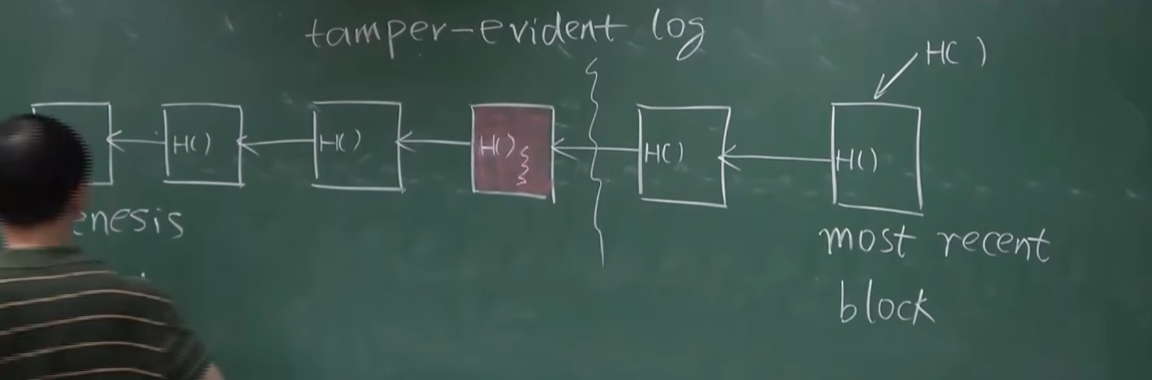 tamper-evident log
H( )
H( ) H( ) H( ) H( ) H( )
enesis
most recent
block